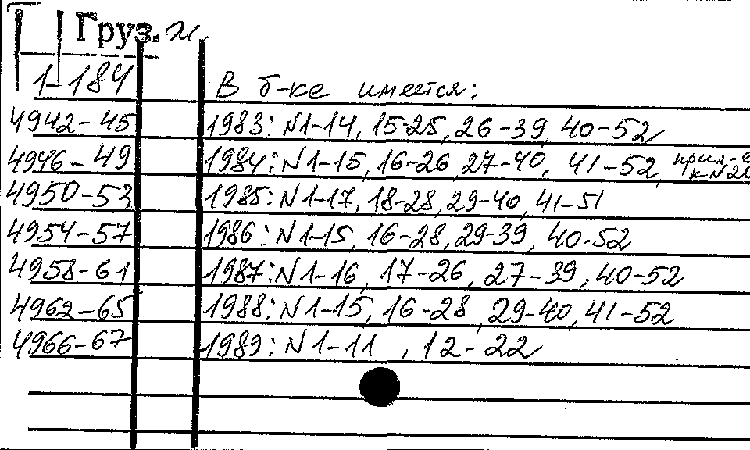 Груз. н
1-184 В б-ке имеется:
4942-45 1983: N1-14, 15-25, 26-39, 40-52
4946-49 1984: N1-15, 16-26, 27-40, 41-52, прил-е к N28
4950-53 1985: N1-17, 18-28, 29-40, 41-51
4954-57 1986: N1-15, 16-28, 29-39, 40-52
4958-61 1987: N1-16, 17-26, 27-39, 40-52
4962-65 1988: N1-15, 16-28, 29-40, 41-52
4966-67 1989: N1-11, 12-22